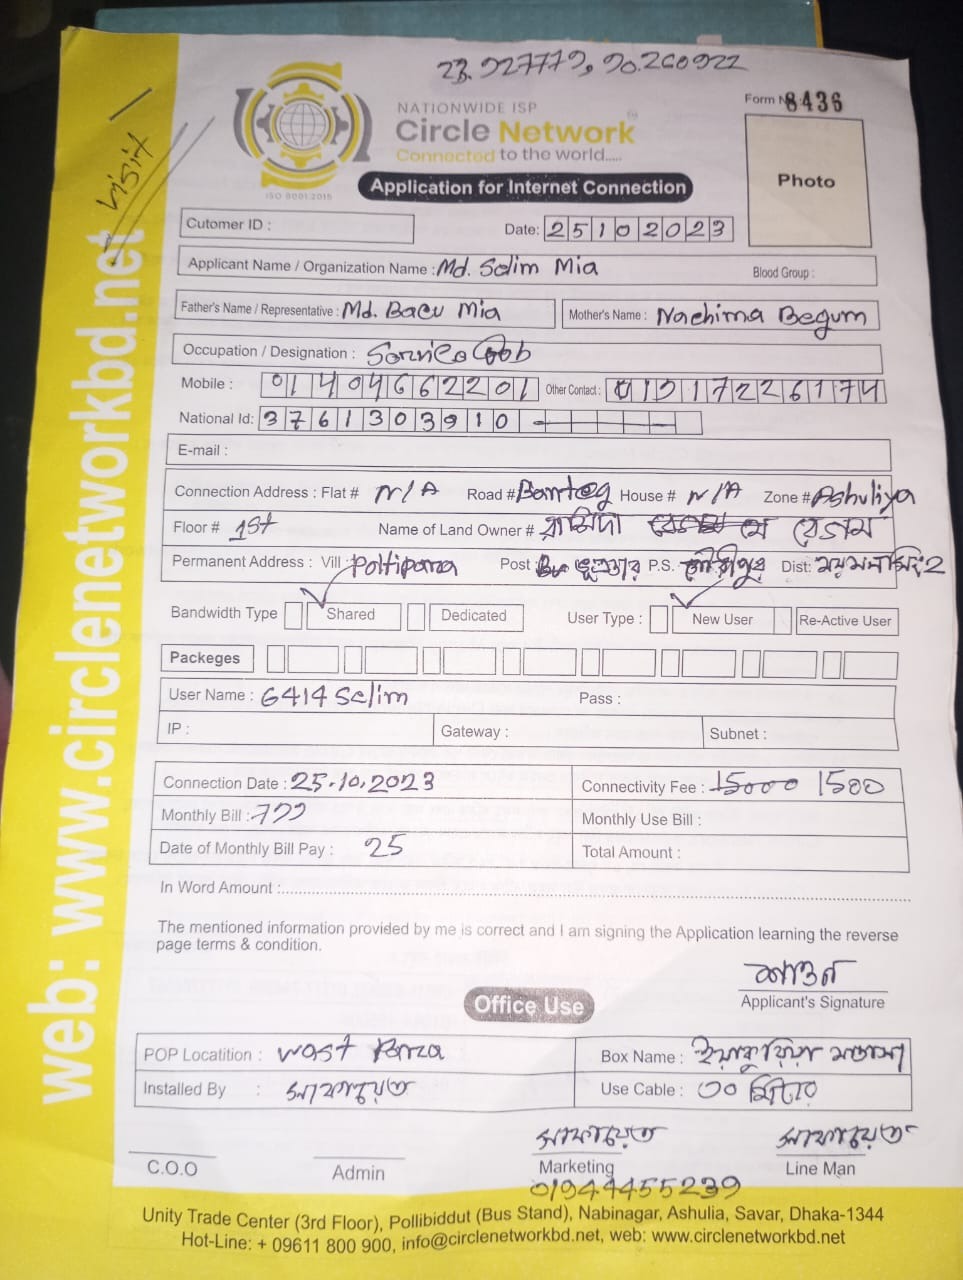 23.927779, 90.260922
NATIONWIDE ISP
Form No 8436
Circle Network
Connected to the world.....
ISO 9001:2015
Application for Internet Connection
Photo
visit
web: www.circlenetworkbd.net
Cutomer ID :
Date: 25102023
Applicant Name / Organization Name : Md. Selim Mia
Blood Group :
Father's Name / Representative : Md. Bacu Mia
Mother's Name : Nachima Begum
Occupation / Designation : Service Job
Mobile : 01404662201 Other Contact : 01917226174
National Id: 3761303910
E-mail :
Connection Address : Flat # N/A Road # House # N/A Zone # Ashuliya
Floor # 1st Name of Land Owner # বেগম
Permanent Address : Vill : Paltipara Post : P.S. গৌরীপুর Dist: ময়মনসিংহ
Bandwidth Type Shared Dedicated User Type : New User Re-Active User
Packeges
User Name : 6414 Selim Pass :
IP : Gateway : Subnet :
Connection Date : 25.10.2023 Connectivity Fee : 15000 1500
Monthly Bill : Monthly Use Bill :
Date of Monthly Bill Pay : 25 Total Amount :
In Word Amount :
The mentioned information provided by me is correct and I am signing the Application learning the reverse
page terms & condition.
Applicant's Signature
Office Use
POP Locatition : West Para Box Name :
Installed By : সাফায়েত Use Cable : ৩০ মিটার
সাফায়েত সাফায়েত
C.O.O Admin Marketing Line Man
01944455239
Unity Trade Center (3rd Floor), Pollibiddut (Bus Stand), Nabinagar, Ashulia, Savar, Dhaka-1344
Hot-Line: + 09611 800 900, info@circlenetworkbd.net, web: www.circlenetworkbd.net